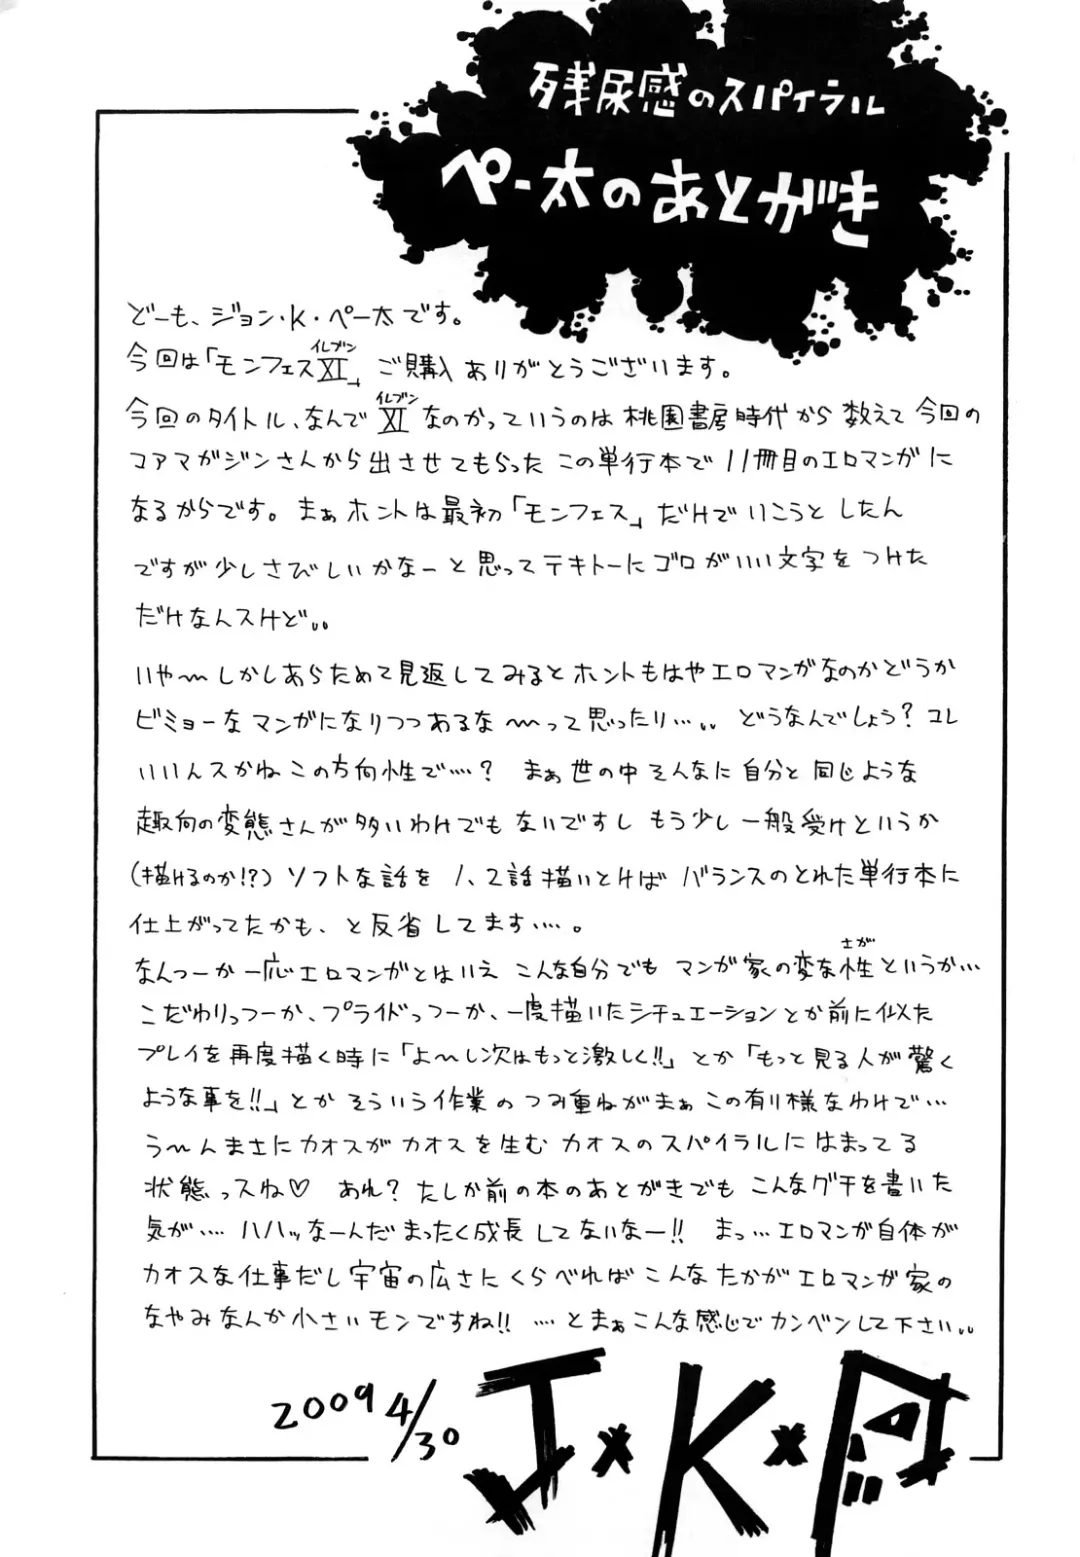 残尿感のスパイラル
ペー太のあとがき
どーも、ジョン・K・ペー太です。
イレブン
今回は「モンフェスXI」ご購入ありがとうございます。
イレブン
今回のタイトル、なんでXIなのかっていうのは桃園書房時代から数えて今回の
コアマガジンさんから出させてもらったこの単行本で11冊目のエロマンガに
なるからです。まぁホントは最初「モンフェス」だけでいこうとしたん
ですが少しさびしいかなーと思ってテキトーにゴロがいい文字をつけた
だけなんスけど。。
いや〜しかしあらためて見返してみるとホントもはやエロマンガなのかどうか
ビミョーなマンガになりつつあるな〜って思ったり…。。どうなんでしょう?コレ
いいんスかねこの方向性で…?まぁ世の中そんなに自分と同じような
趣向の変態さんが多いわけでもないですしもう少し一般受けというか
(描けるのか!?)ソフトな話を1、2話描いとけばバランスのとれた単行本に
仕上がってたかも、と反省してます…。
さが
なんつーか一応エロマンガとはいえこんな自分でもマンガ家の変な性というか…
こだわりっつーか、プライドっつーか、一度描いたシチュエーションとか前に似た
プレイを再度描く時に「よ〜し次はもっと激しく!!」とか「もっと見る人が驚く
ような事を!!」とかそういう作業のつみ重ねがまぁこの有り様なわけで…
う〜んまさにカオスがカオスを生むカオスのスパイラルにはまってる
状態っスね♡ あれ?たしか前の本のあとがきでもこんなグチを書いた
気が…ハハッなーんだまったく成長してないなー!! まっ…エロマンガ自体が
カオスな仕事だし宇宙の広さにくらべればこんなたかがエロマンガ家の
なやみなんか小さいモンですね!! …とまぁこんな感じでカンベンして下さい。。
2009 4/30
J×K×P